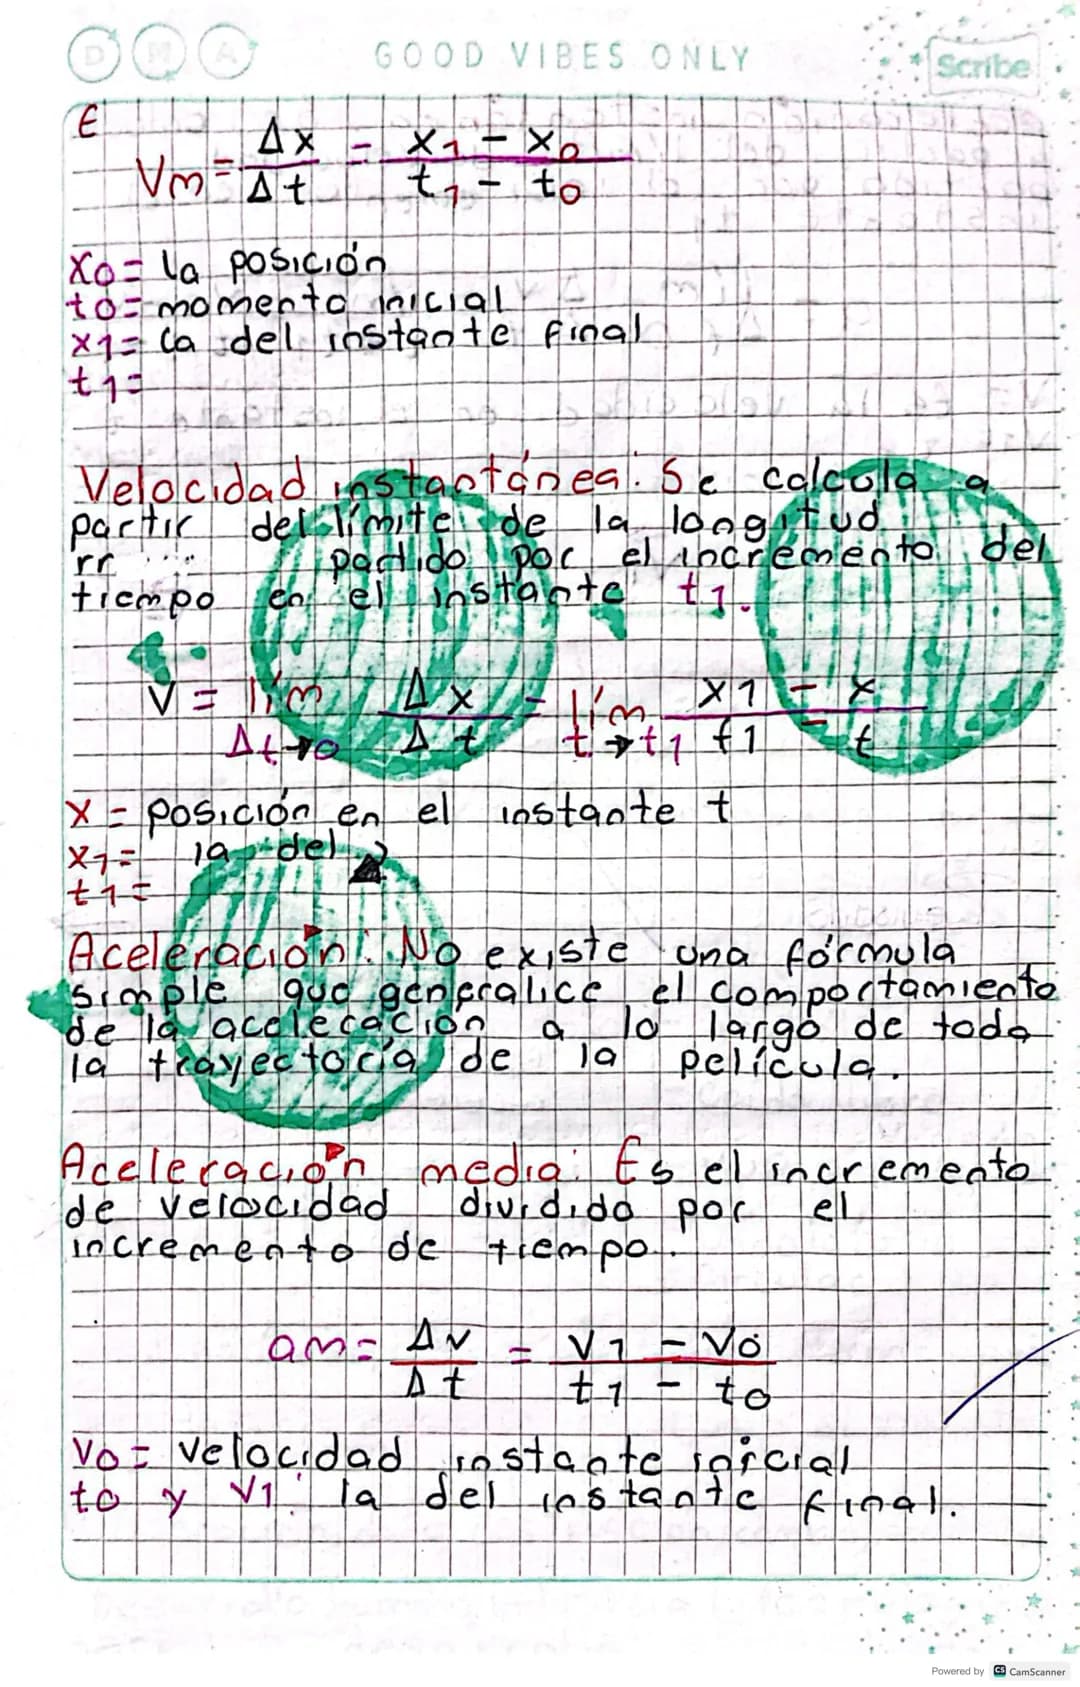 D M A
GOOD VIBES ONLY
Scribe
E
Vm = Δx / Δt = x1 - x0 / t1 - t0
x0 = la posición
t0 = momento inicial
x1 = la del instante final
t1 =
Velocidad instantánea: Se calcula a
partir del límite de la longitud
rr partido por el incremento del
tiempo en el instante t1.
V = lím Δt→0 Δx / Δt = lím t→t1 x1 - x / t1 - t
x = posición en el instante t
x1 = la del
t1 =
Aceleración: No existe una fórmula
simple que generalice el comportamiento
de la aceleración a lo largo de toda
la trayectoria de la película.
Aceleración media: Es el incremento
de velocidad dividido por el
incremento de tiempo.
am = Δv / Δt = v1 - v0 / t1 - t0
v0 = velocidad instante inicial
t0 y v1: la del instante final.
Powered by CS CamScanner